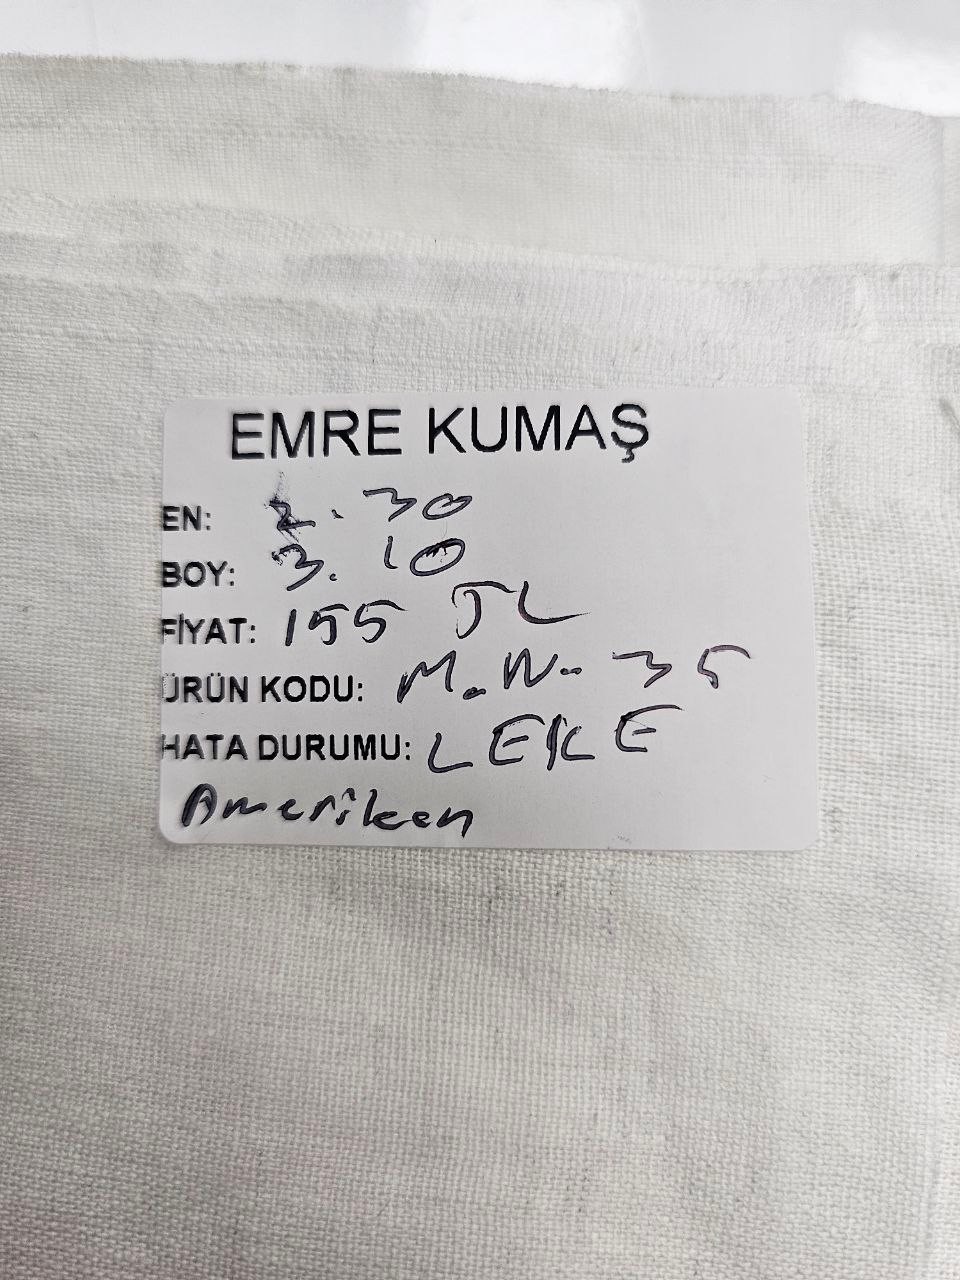 EMRE KUMAŞ
EN: 2.30
BOY: 3.10
FİYAT: 155 TL
ÜRÜN KODU: M.N. 35
HATA DURUMU: LEKE
Amerikan